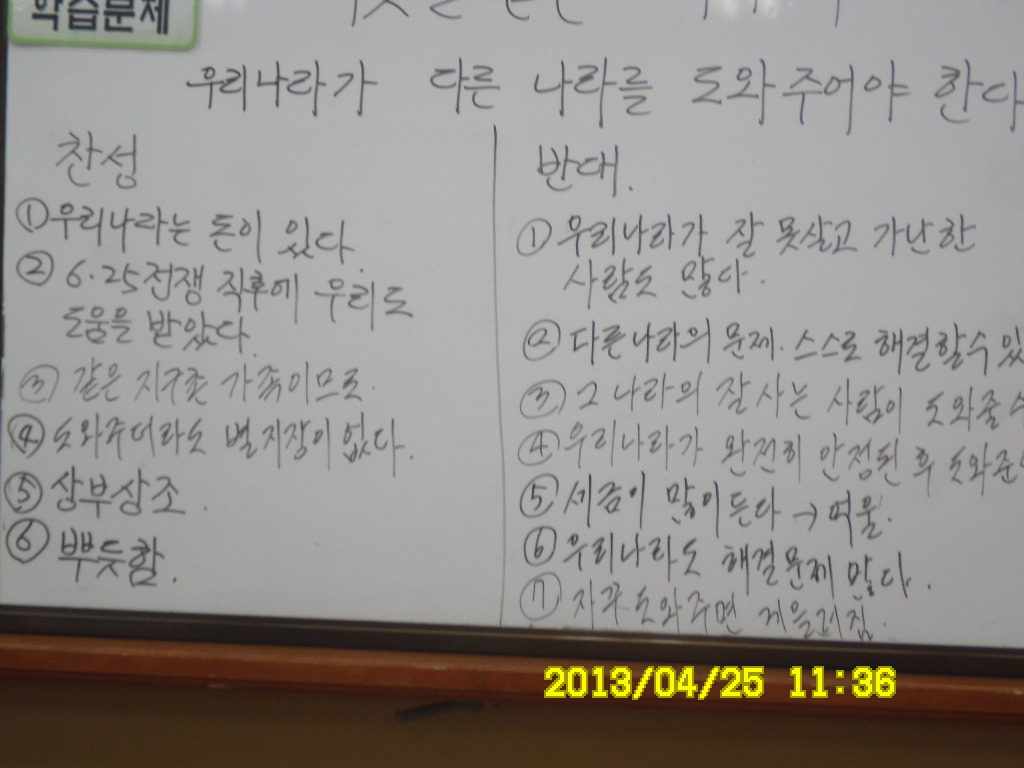 학습문제
우리나라가 다른 나라를 도와주어야 한다
찬성
① 우리나라는 돈이 있다.
② 6·25전쟁 직후에 우리도
도움을 받았다.
③ 같은 지구촌 가족이므로.
④ 도와주더라도 별 지장이 없다.
⑤ 상부상조.
⑥ 뿌듯함.
반대.
① 우리나라가 잘 못살고 가난한
사람도 많다.
② 다른나라의 문제. 스스로 해결할수 있
③ 그 나라의 잘 사는 사람이 도와줄수
④ 우리나라가 완전히 안정된 후 도와준
⑤ 세금이 많이 든다 →
⑥ 우리나라도 해결문제 많다.
⑦ 자꾸 도와주면 게을러짐.
2013/04/25 11:36